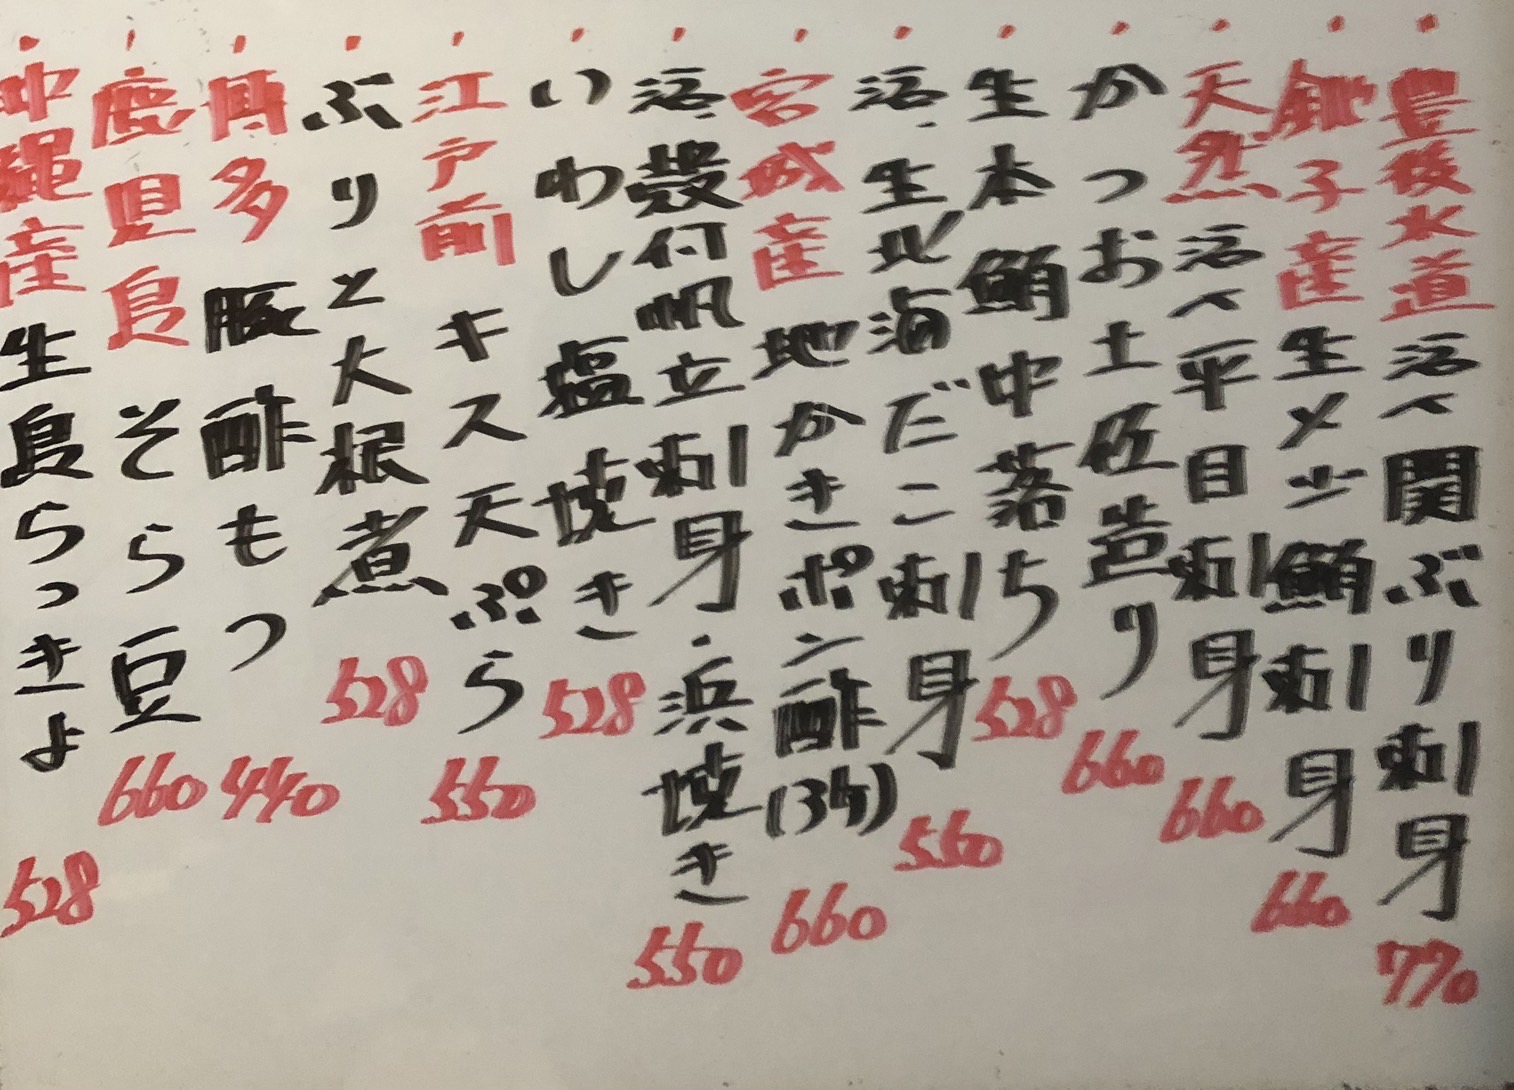 ・豊後水道活〆関ぶり刺身 770
・銚子産生メジ鮪刺身 660
・天然活〆平目刺身 660
・かつお土佐造り 660
・生本鮪中落ち 528
・活生北海だこ刺身 550
・宮城産地かきポン酢(3ケ) 660
・活殻付帆立刺身・浜焼き 550
・いわし塩焼き 528
・江戸前キス天ぷら 550
・ぶりと大根煮 528
・博多豚酢もつ 440
・鹿児島そら豆 660
・沖縄産生島らっきょ 528